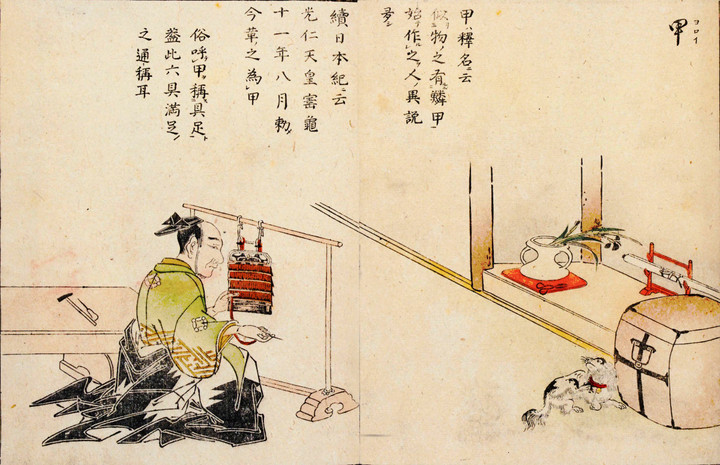 甲 ヨロイ
甲ハ釋名ニ云
似物ノ之有鱗甲
始作之人異説
多シ
續日本紀ニ云
光仁天皇寳龜
十一年八月勅
今革之為甲
俗呼甲稱具足ト
蓋此六具満足ノ
之通稱耳